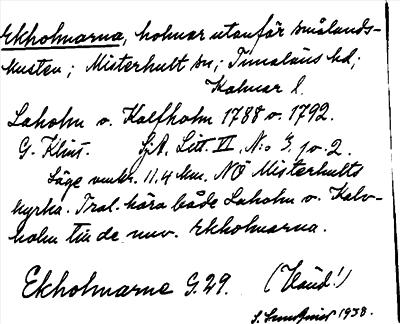 Ekholmarna, holmar utanför smålands-
kusten; Misterhult sn; Tunaläns hd;
Kalmar l.
Laholm o. Kalfholm 1788 o. 1792.
G. Klint. Sjk. Litt. II, N:o 3. o. 2.
Läge omkr. 11,4 km. NÖ Misterhults
kyrka. Trol. höra både Laholm o. Kalv-
holm till de nuv. Ekholmarna.
Ekholmarne G.29. (Vänd!)
S. 1938.